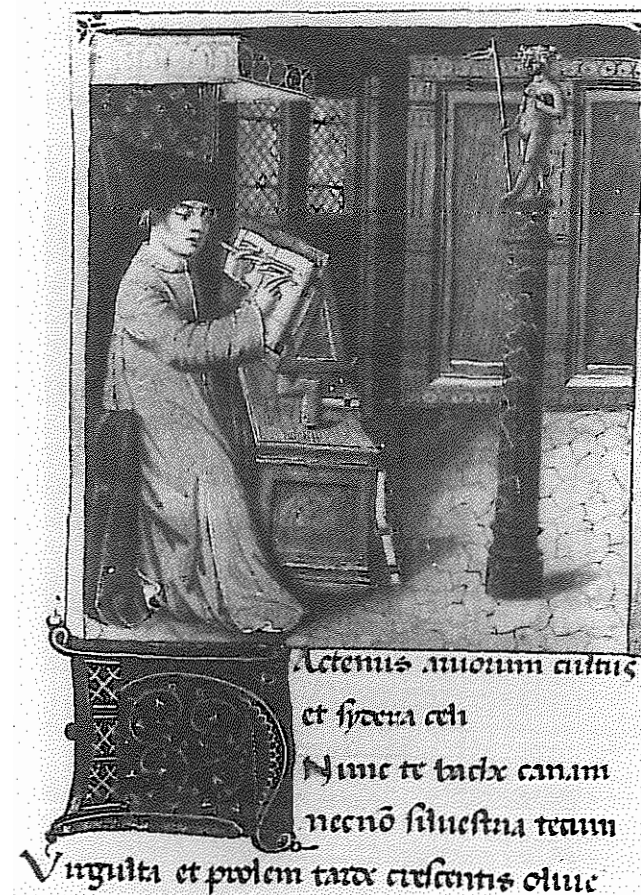 HActenus aruorum cultus
et sydera celi
Nunc te bache canam
necnō siluestria tecum
Virgulta et prolem tarde crescentis oliue